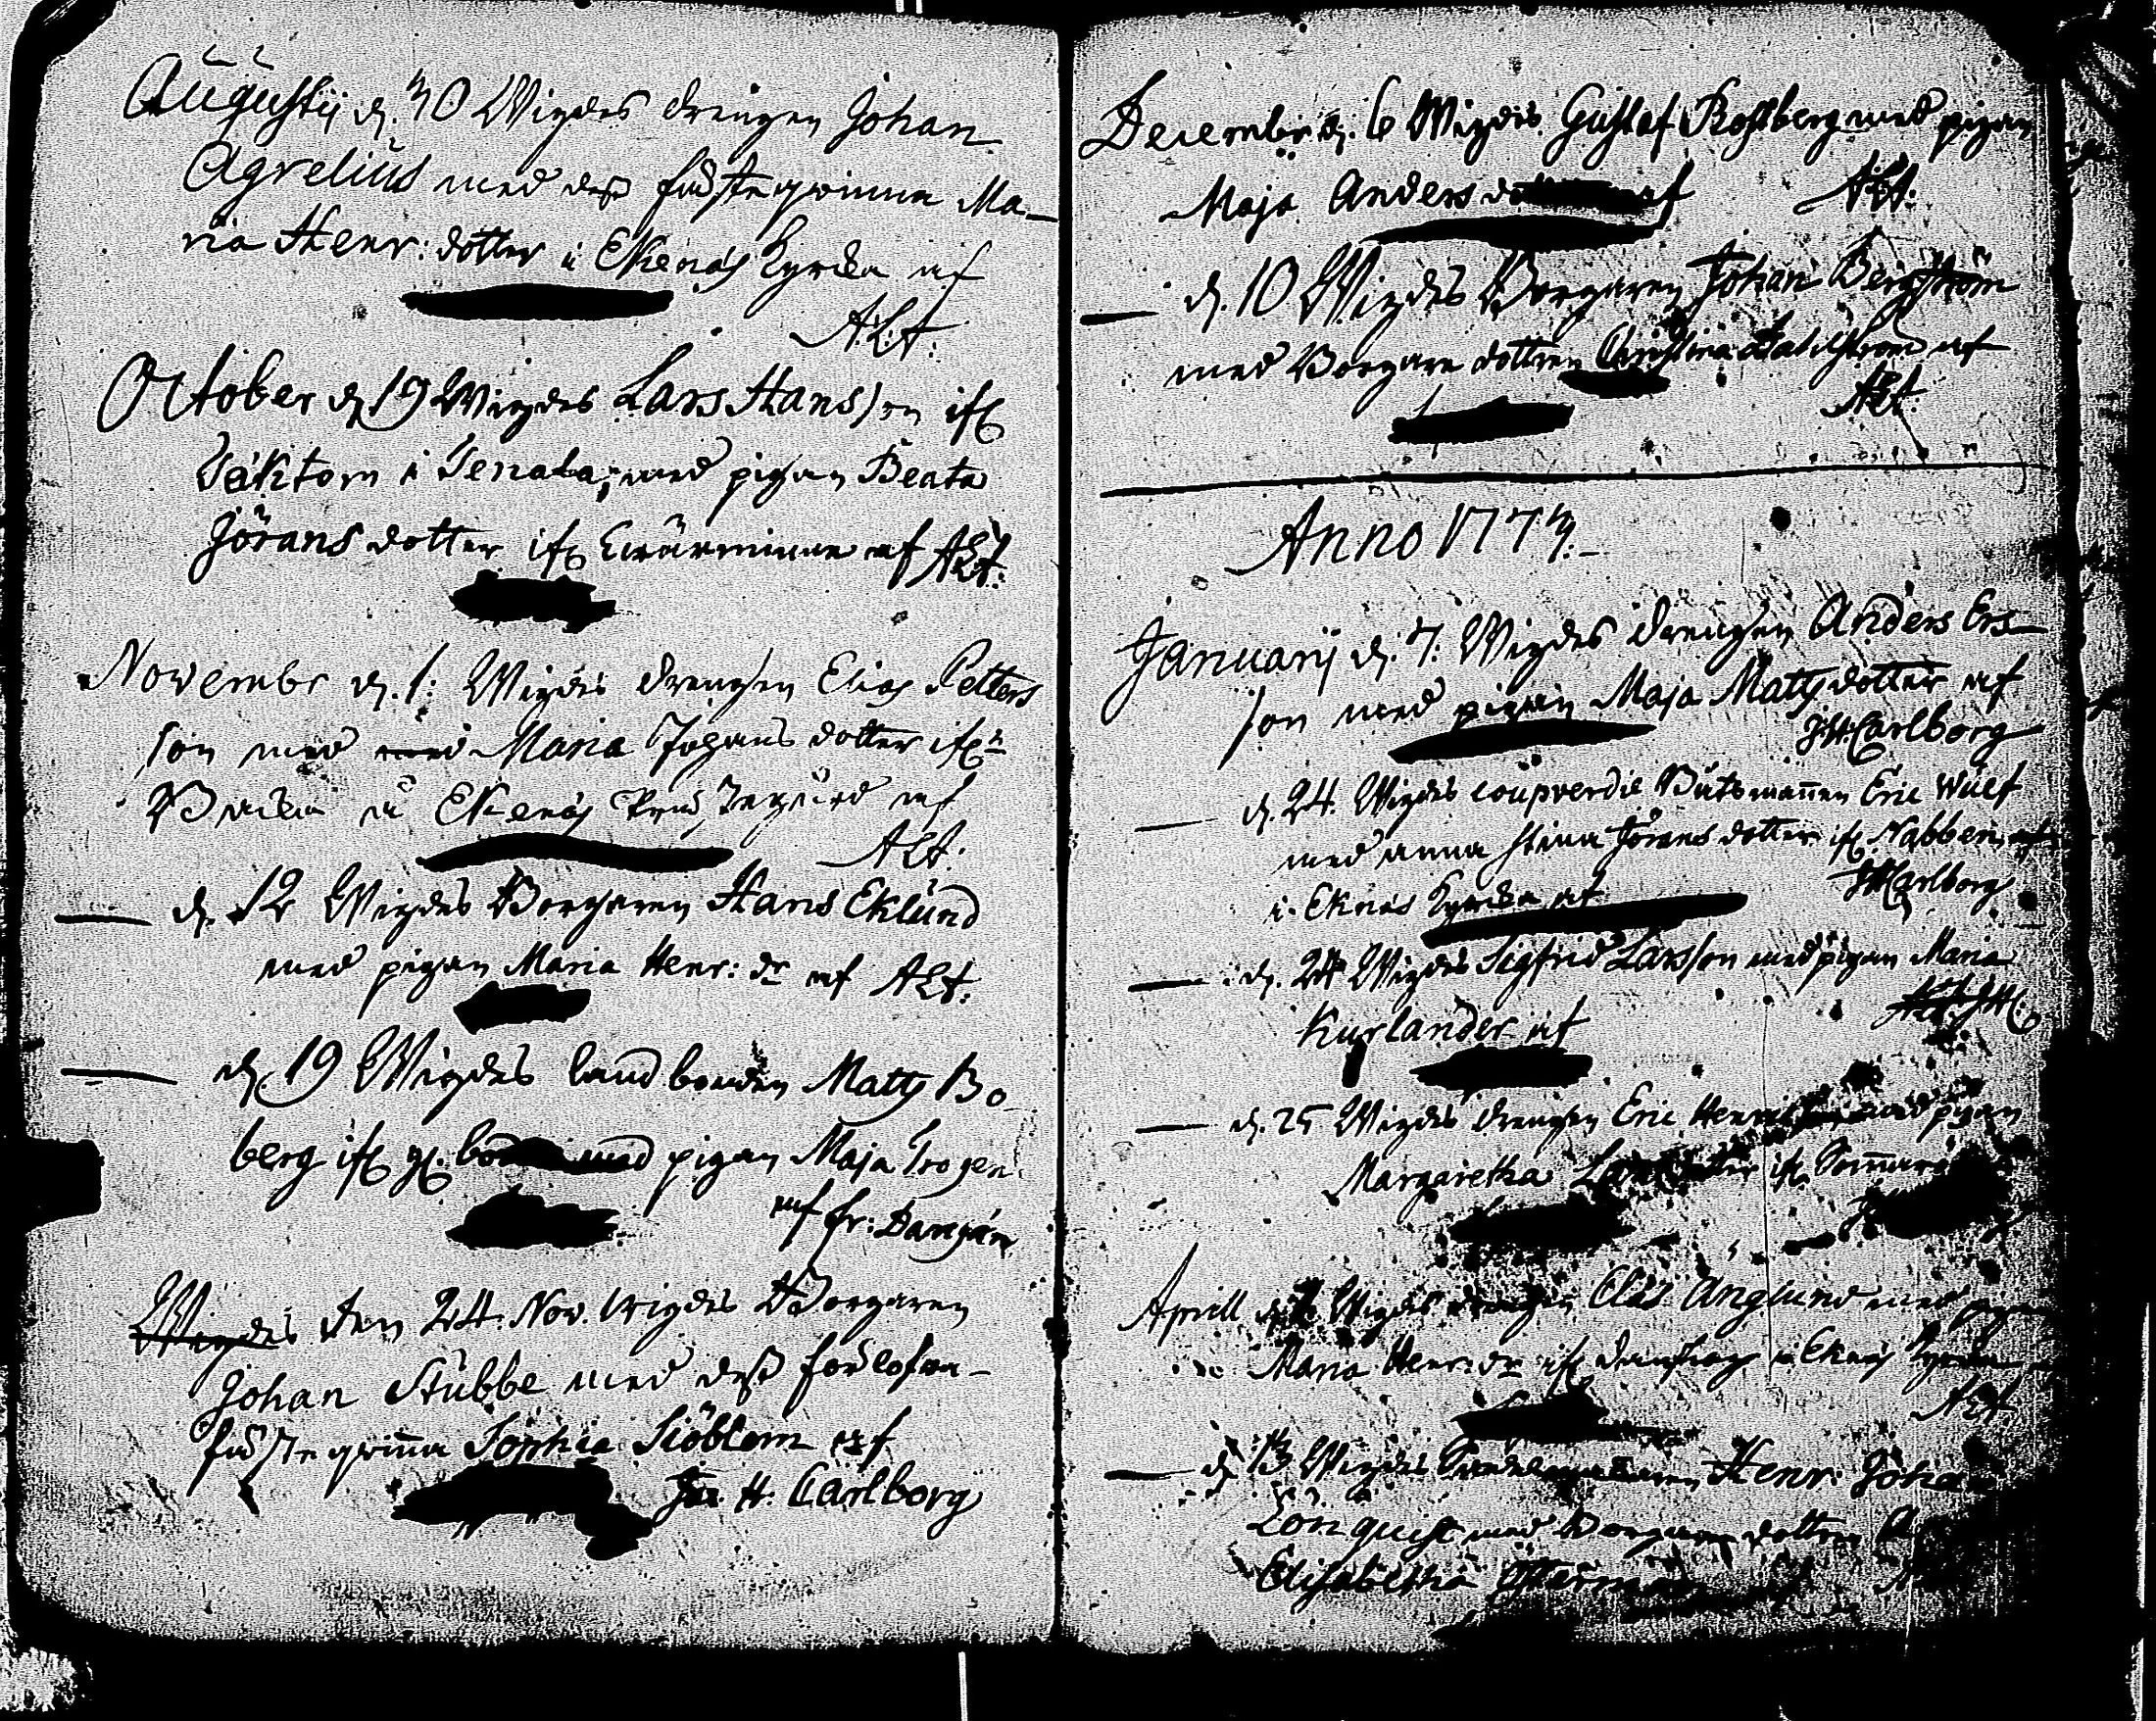 Augustij d. 30 Wigdes drengen Johan
Agrelius med dess fästeqvinna Ma-
ria Henr: dotter i Ekenäs Kyrcka af
A.L.t.
October d. 19 Wigdes Lars Hansson ifr
Täktom i Tenala, med pigan Beata
Jörans dotter ifr Twärminne af ALt.
Novembr d. 1: Wigdes drengen Elias Petters
son med med Maria Johans dotter ifr
Ekenäs af
ALt.
d. 12 Wigdes Borgaren Hans Eklund
med pigan Maria Henr: dr af ALt.
d. 19 Wigdes landbonden Matts Bo
berg ifr med pigan Maja Trogen
af Fr:
Wigdes den 24. Nov. wigdes Borgaren
Johan Stubbe med dess förlofva-
fästeqvinna Sophia Siöblom af
H. Carlborg
December d. 6 Wigdes Gustaf Rossberg med pigan
Maja Anders af ALt.
d. 10 Wigdes Borgaren Johan Bergström
med Borgare dottren Christina af
ALt.
Anno 1774.
Januarij d. 7. Wigdes drengen Anders Ers-
son med pigan Maja Matts dotter af
J.H. Carlborg
d. 24. Wigdes coupverdie Båtsmannen Eric Wulf
med anna stina Jörans dotter ifr Nabben
i Eknäs Kyrcka af JHCarlborg
d. 24 Wigdes Sigfrid Larsson med pigan Maria
Kurlander af
d. 25 Wigdes drengen Eric med pigan
Margaretha ifr
Aprill Wigdes drengen Elias Änglund med
Maria Henr: dr ifr i Eknäs Kyrcka
ALt.
d. 13 Wigdes Henr: Johan
Lönquist med Borgare dottren
Elisabetha